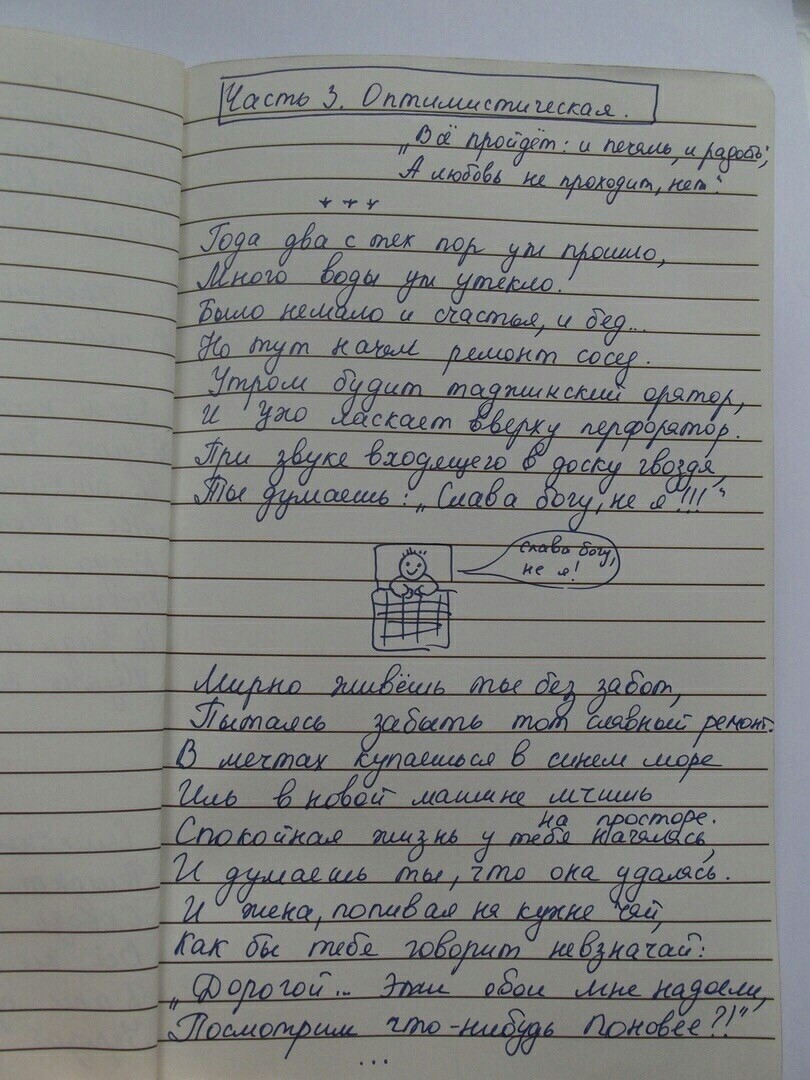 Часть 3. Оптимистическая.
„Всё пройдёт: и печаль, и радость,
А любовь не проходит, нет".
Года два с тех пор уж прошло,
Много воды уж утекло.
Было немало и счастья, и бед...
Но тут начал ремонт сосед.
Утром будит таджикский оратор,
И ухо ласкает вверху перфоратор.
При звуке входящего в доску гвоздя,
Ты думаешь: „Слава богу, не я!!!"
слава богу,
не я!
Мирно живёшь ты без забот,
Пытаясь забыть тот славный ремонт.
В мечтах купаешься в синем море
Иль в новой машине мчишь
на просторе.
Спокойная жизнь у тебя началась,
И думаешь ты, что она удалась.
И жена, попивая на кухне чай,
Как бы тебе говорит невзначай:
„Дорогой... Эти обои мне надоели,
Посмотрим что-нибудь поновее?!"
...